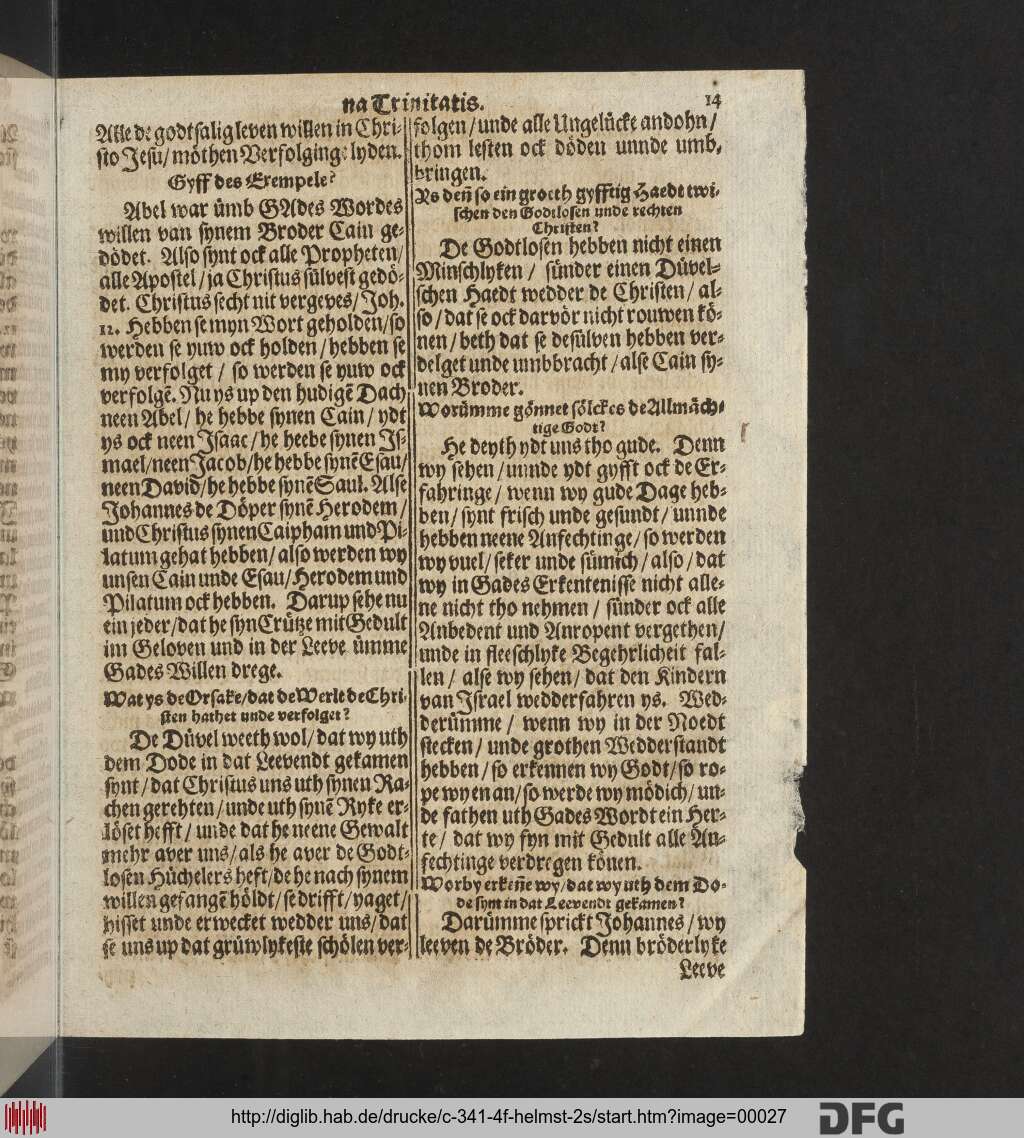 na Trinitatis.
14
Alle de godtsalig leven willen in Chri-
sto Jesu / möthen Verfolginge lyden.
Gyff des Exempele?
Abel war ümb GAdes Wordes
willen van synem Broder Cain ge-
dödet. Also synt ock alle Propheten /
alle Apostel / ja Christus sülvest gedö-
det. Christus secht nit vergeves / Joh.
12. Hebben se myn Wort geholden / so
werden se yuw ock holden / hebben se
my verfolget / so werden se yuw ock
verfolgē. Nu ys up den hudigē Dach
neen Abel / he hebbe synen Cain / ydt
ys ock neen Isaac / he heebe synen Is-
mael / neen Jacob / he hebbe synē Esau /
neen David / he hebbe synē Saul. Alse
Johannes de Döper synē Herodem /
und Christus synen Caipham und Pi-
latum gehat hebben / also werden wy
unsen Cain unde Esau / Herodem und
Pilatum ock hebben. Darup sehe nu
ein jeder / dat he syn Crütze mit Gedult
im Geloven und in der Leeve ümme
Gades Willen drege.
Wat ys de Orsake / dat de Werlt de Chri-
sten hathet unde verfolget?
De Düvel weeth wol / dat wy uth
dem Dode in dat Leevendt gekamen
synt / dat Christus uns uth synen Ra-
chen gerehten / unde uth synē Ryke er-
löset hefft / unde dat he neene Gewalt
mehr aver uns / als he aver de Godt-
losen Hüchelers heft / de he nach synem
willen gefangē höldt / se drifft / yaget /
hisset unde erwecket wedder uns / dat
se uns up dat grüwlykeste schölen ver-
folgen / unde alle Ungelücke andohn /
thom lesten ock döden unnde umb-
bringen.
Ys deñ so ein groeth gyfftig Haedt twi-
schen den Godtlosen unde rechten
Christen?
De Godtlosen hebben nicht einen
Minschlyken / sünder einen Düvel-
schen Haedt wedder de Christen / al-
so / dat se ock darvör nicht rouwen kö-
nen / beth dat se desülven hebben ver-
delget unde umbbracht / alse Cain sy-
nen Broder.
Worümme gönnet sölckes de Allmäch-
tige Godt?
He deyth ydt uns tho gude. Denn
wy sehen / unnde ydt gyfft ock de Er-
fahringe / wenn wy gude Dage heb-
ben / synt frisch unde gesundt / unnde
hebben neene Anfechtinge / so werden
wy vuel / seker und sümich / also / dat
wy in Gades Erkentenisse nicht alle-
ne nicht tho nehmen / sünder ock alle
Anbedent und Anropent vergethen /
unde in fleeschlyke Begehrlicheit fal-
len / alse wy sehen / dat den Kindern
van Israel wedderfahren ys. Wed-
derümme / wenn wy in der Noedt
stecken / unde grothen Wedderstandt
hebben / so erkennen wy Godt / so ro-
pe wy en an / so werde wy mödich / un-
de fathen uth Gades Wordt ein Her-
te / dat wy fyn mit Gedult alle An-
fechtinge verdregen könen.
Worby erkeñe wy / dat wy uth dem Do-
de synt in dat Leevendt gekamen?
Darümme sprickt Johannes / wy
leeven de Bröder. Denn bröderlyke
Leeve
http://diglib.hab.de/drucke/c-341-4f-helmst-2s/start.htm?image=00027
DFG